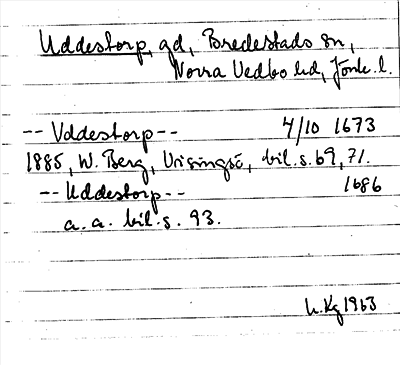 Uddestorp, gd, Bredestads sn,
Norra Vedbo hd, Jönk. l.
-- Vddestorp -- 4/10 1673
1885, W. Berg, Visingsö, bil. s. 69, 71.
-- Uddestorp -- 1686
a. a. bil. s. 93.
1963